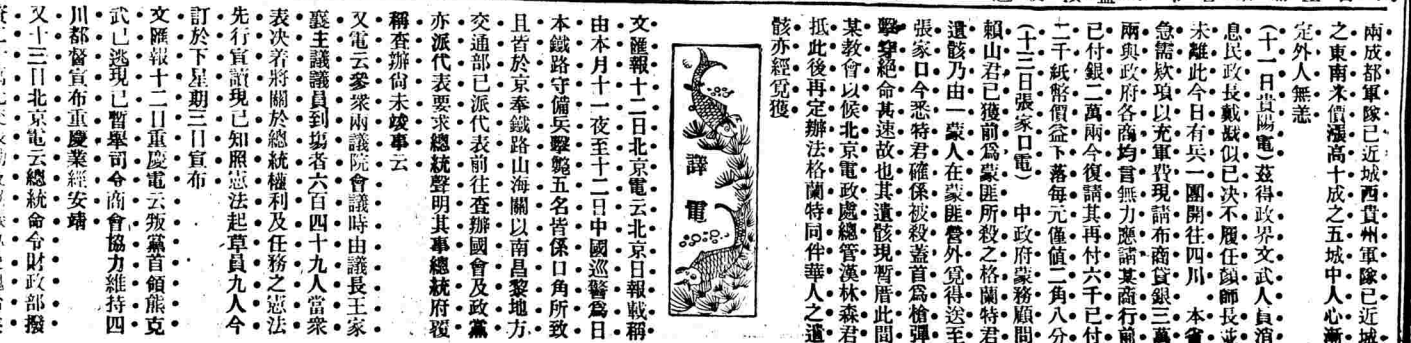 兩成都軍隊已近城西貴州軍隊已近城
之東南米價漲高十成之五城中人心漸
定外人無恙
(十一日貴陽電)茲得政界文武人員消
息民政長戴戡似已决不履任顔師長並
未離此今日有兵一團開往四川 本省
急需欵項以充軍費現請布商貸銀三萬
兩與政府各商均言無力應請某商行前
已付銀二萬兩今復請其再付六千已付
二千紙幣價益下落每元僅值二角八分
(十三日張家口電) 中政府蒙務顧問
賴山君已獲前爲蒙匪所殺之格蘭特君
遺骸乃由一蒙人在蒙匪營外覓得送至
張家口今悉特君確係被殺蓋首爲槍彈
擊穿絕命甚速故也其遺骸現暫厝此間
某教會以候北京電政處總管漢林森君
抵此後再定辦法格蘭特同伴華人之遺
骸亦經覓獲
譯電
文滙報十二日北京電云北京日報載稱
由本月十一夜至十二日中國巡警爲日
本鐵路守備兵擊斃五名皆係口角所致
且皆於京奉鐵路山海關以南昌黎地方
交通部已派代表前往查辦國會及政黨
亦派代表要求總統聲明其事總統府覆
稱查辦尙未竣事云
又電云參衆兩議院會議時由議長王家
襄主議議員到塲者六百四十九人當衆
表决着將關於總統權利及任務之憲法
先行宣讀現已知照憲法起草員九人今
訂於下星期三日宣布
文滙報十二日重慶電云叛黨首領熊克
武已逃現已暫舉司令商會協力維持四
川都督宣布重慶業經安靖
又十三日北京電云總統命令財政部撥